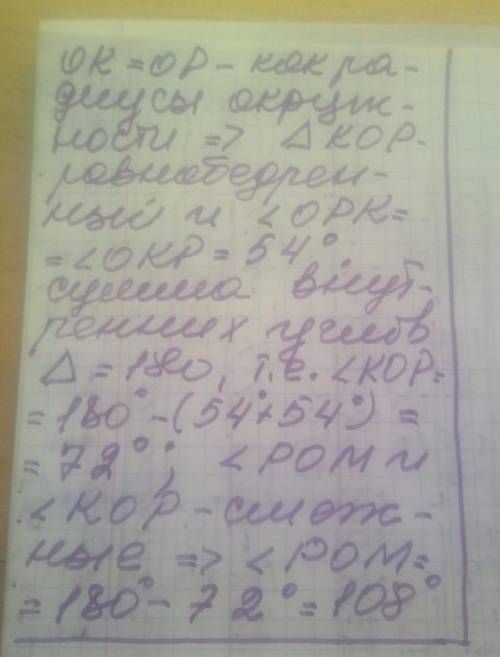 OK = OP - как ра-
диусы окруж-
ности => Δ KOP-
равнобедрен-
ный и <OPK=
= <OKP = 54°.
сумма внут-
ренних углов
Δ = 180, т.е. <KOP=
= 180° - (54°+54°) =
= 72°; <POM и
<KOP-смеж-
ные => <POM=
= 180° - 72° = 108°